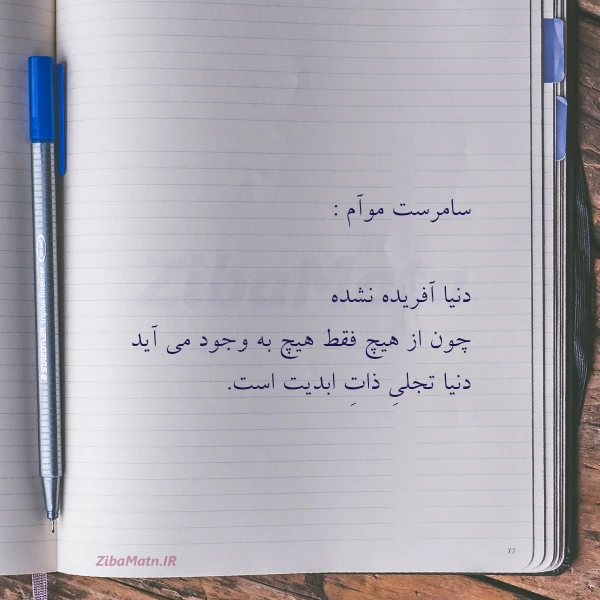 سامرست موآم :
دنیا آفریده نشده
چون از هیچ فقط هیچ به وجود می آید
دنیا تجلیِ ذاتِ ابدیت است.
ZibaMatn
ZibaMatn.IR
77
STAEDTLER triplus fineliner